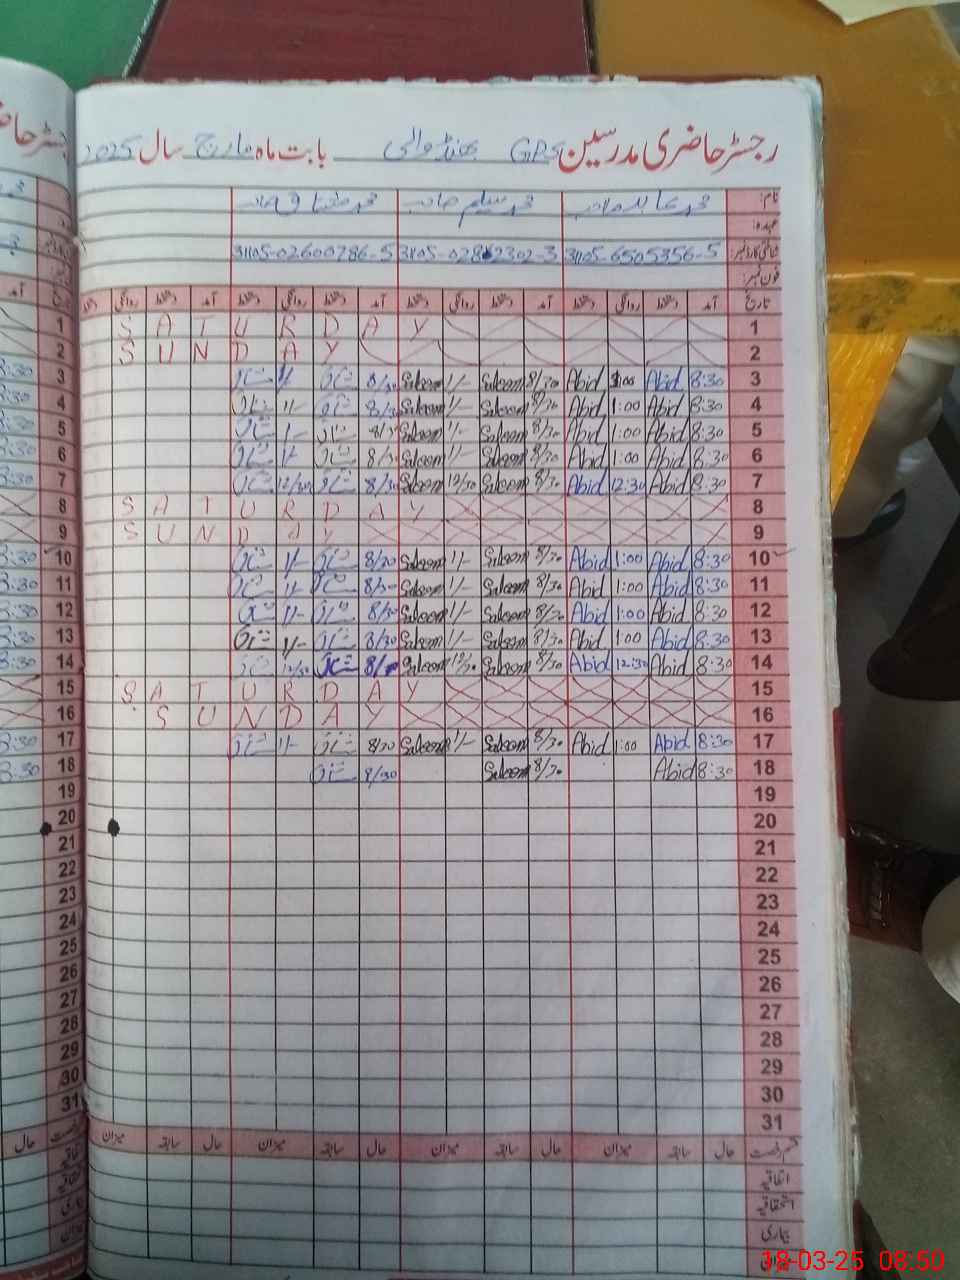 رجسٹر حاضری مدرسین GPS بھنڈوالی بابت ماہ مارچ سال 2025
نام: محمد سلیم صاحب محمد مشتاق صاحب
عہدہ:
شناختی کارڈ نمبر: 31105-6505356-5 31105-02600786-5
فون نمبر:
تاریخ آمد دستخط روانگی دستخط آمد دستخط روانگی دستخط آمد دستخط روانگی دستخط آمد دستخط روانگی دستخط
1 SATURDAY
2 SUNDAY
3 8:30 Abid 1:00 Abid 8/30 Saleem 1/- Saleem 8/30 مشتاق 1/- مشتاق
4 8:30 Abid 1:00 Abid 8/30 Saleem 1/- Saleem 8/30 مشتاق 1/- مشتاق
5 8:30 Abid 1:00 Abid 8/30 Saleem 1/- Saleem 8/30 مشتاق 1/- مشتاق
6 8:30 Abid 1:00 Abid 8/30 Saleem 1/- Saleem 8/30 مشتاق 1/- مشتاق
7 8:30 Abid 12:30 Abid 8/30 Saleem 12/30 Saleem 8/30 مشتاق 12/30 مشتاق
8 SATURDAY
9 SUNDAY
10 8:30 Abid 1:00 Abid 8/30 Saleem 1/- Saleem 8/30 مشتاق 1/- مشتاق
11 8:30 Abid 1:00 Abid 8/30 Saleem 1/- Saleem 8/30 مشتاق 1/- مشتاق
12 8:30 Abid 1:00 Abid 8/30 Saleem 1/- Saleem 8/30 مشتاق 1/- مشتاق
13 8:30 Abid 1:00 Abid 8/30 Saleem 1/- Saleem 8/30 مشتاق 1/- مشتاق
14 8:30 Abid 12:30 Abid 8/30 Saleem 12/30 Saleem مشتاق 12/30 مشتاق
15 SATURDAY
16 SUNDAY
17 8:30 Abid 1:00 Abid 8/30 Saleem 1/- Saleem 8/30 مشتاق 1/- مشتاق
18 8:30 Abid 8/30 Saleem 8/30 مشتاق
19
20
21
22
23
24
25
26
27
28
29
30
31
قسم رخصت حال سابقہ میزان حال سابقہ میزان حال سابقہ میزان حال سابقہ میزان
اتفاقیہ
استحقاقیہ
بیماری
18-03-25 08:50